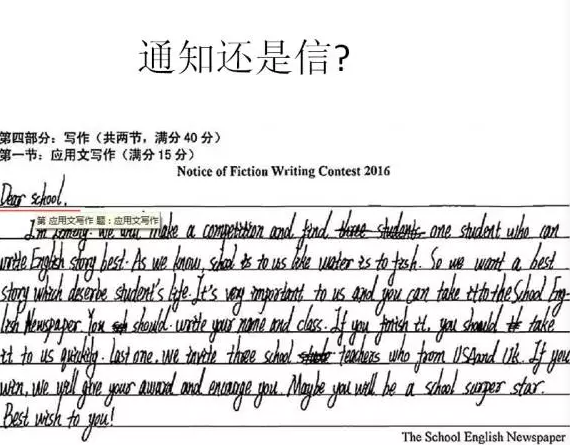 通知还是信?
第四部分：写作（共两节，满分 40 分）
第一节：应用文写作（满分 15 分）
Notice of Fiction Writing Contest 2016
Dear school,
第 应用文写作 题：应用文写作
I'm Jimmy. We will make a competition and find three students one student who can
write English story best. As we know, school is to us like water is to fish. So we want a best
story which deserbe student's life. It's very important to us and you can take it to the School Eng-
lish Newspaper. You should write your name and class. If you finish it, you should take
it to us quickly. Last one, we invite three school teachers who from USA and UK. If you
win, we will give your award and encourage you. Maybe you will be a school surper star.
Best wish to you!
The School English Newspaper